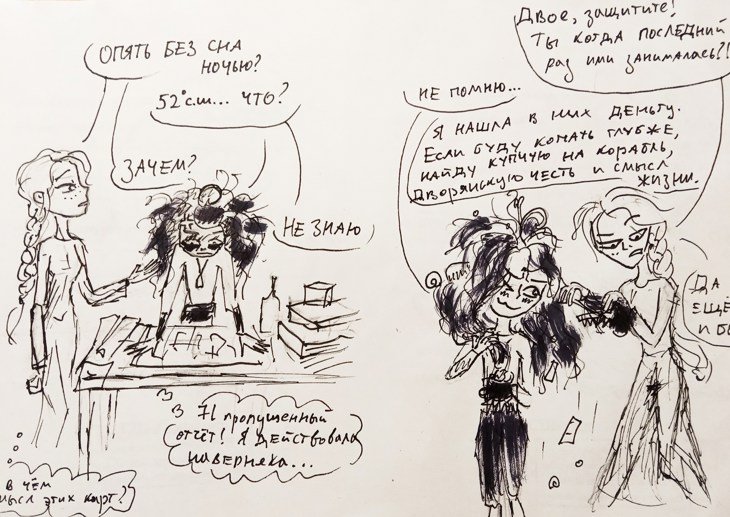 ОПЯТЬ БЕЗ СНА
НОЧЬЮ?
52°с.ш... ЧТО?
ЗАЧЕМ?
НЕ ЗНАЮ
В 71 пропущенный
отчёт! Я действовала
наверняка...
В чём
смысл этих карт?
Двое, защитите!
Ты когда последний
раз ими занималась?!
НЕ ПОМНЮ...
Я НАШЛА В НИХ ДЕНЬГУ.
Если буду копать глубже,
найду купчую на корабль,
дворянскую честь и смысл
жизни.
Да
ещё
и